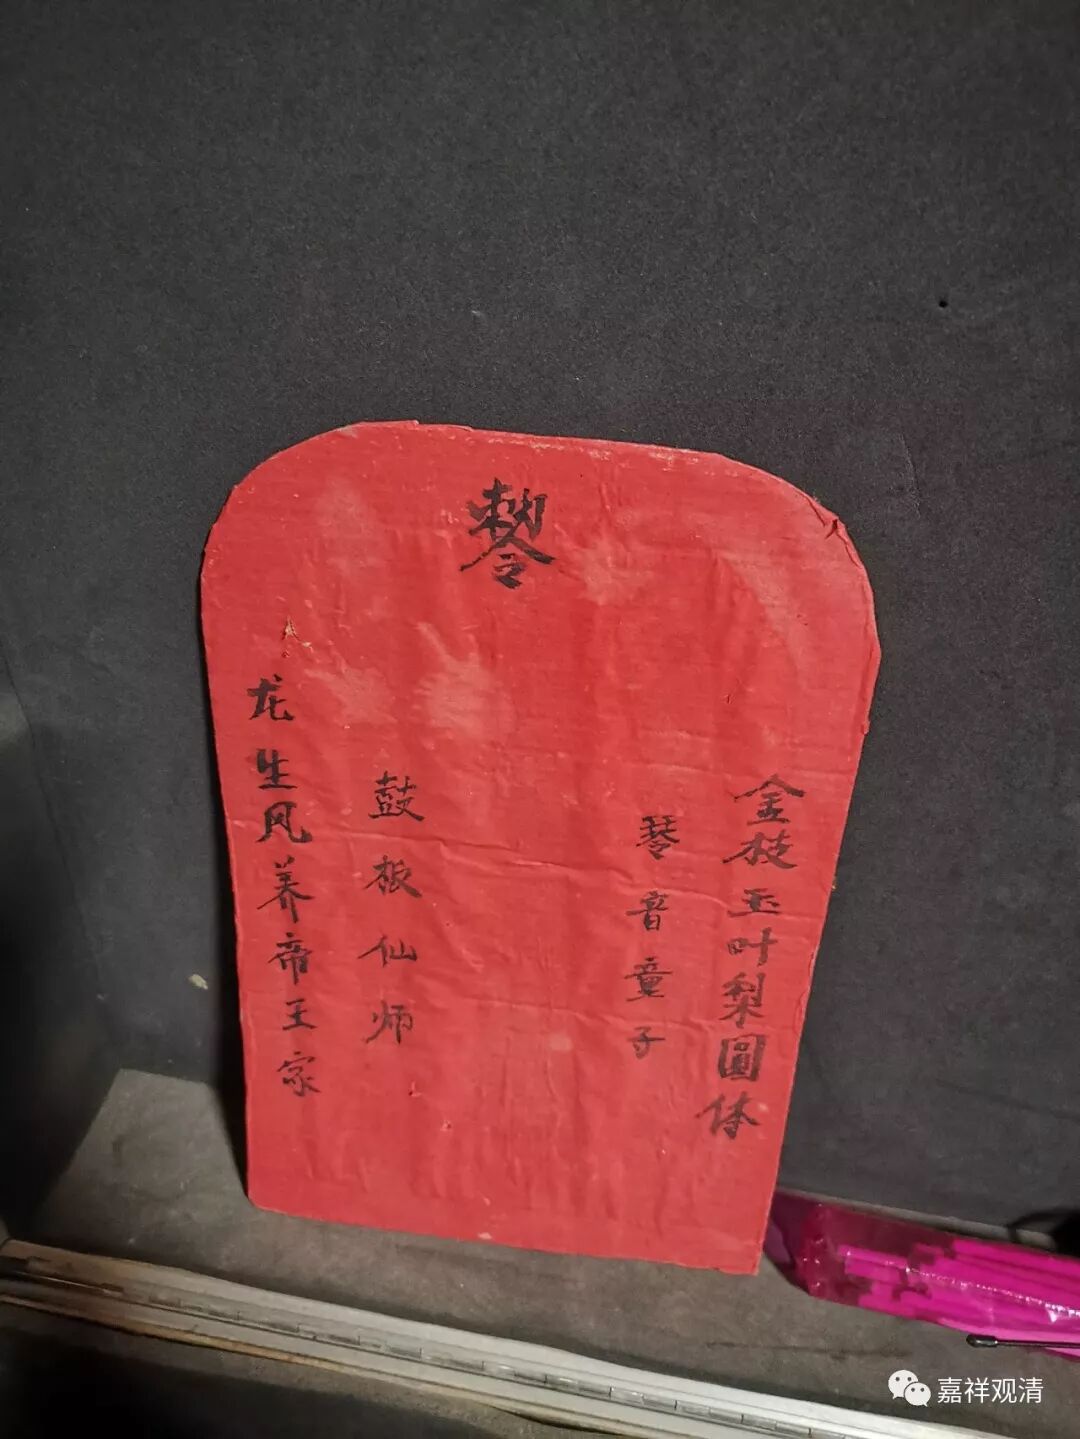 勅令
金枝玉叶梨圓体
琴音童子
鼓板仙师
龙生风养帝王家
嘉祥观清